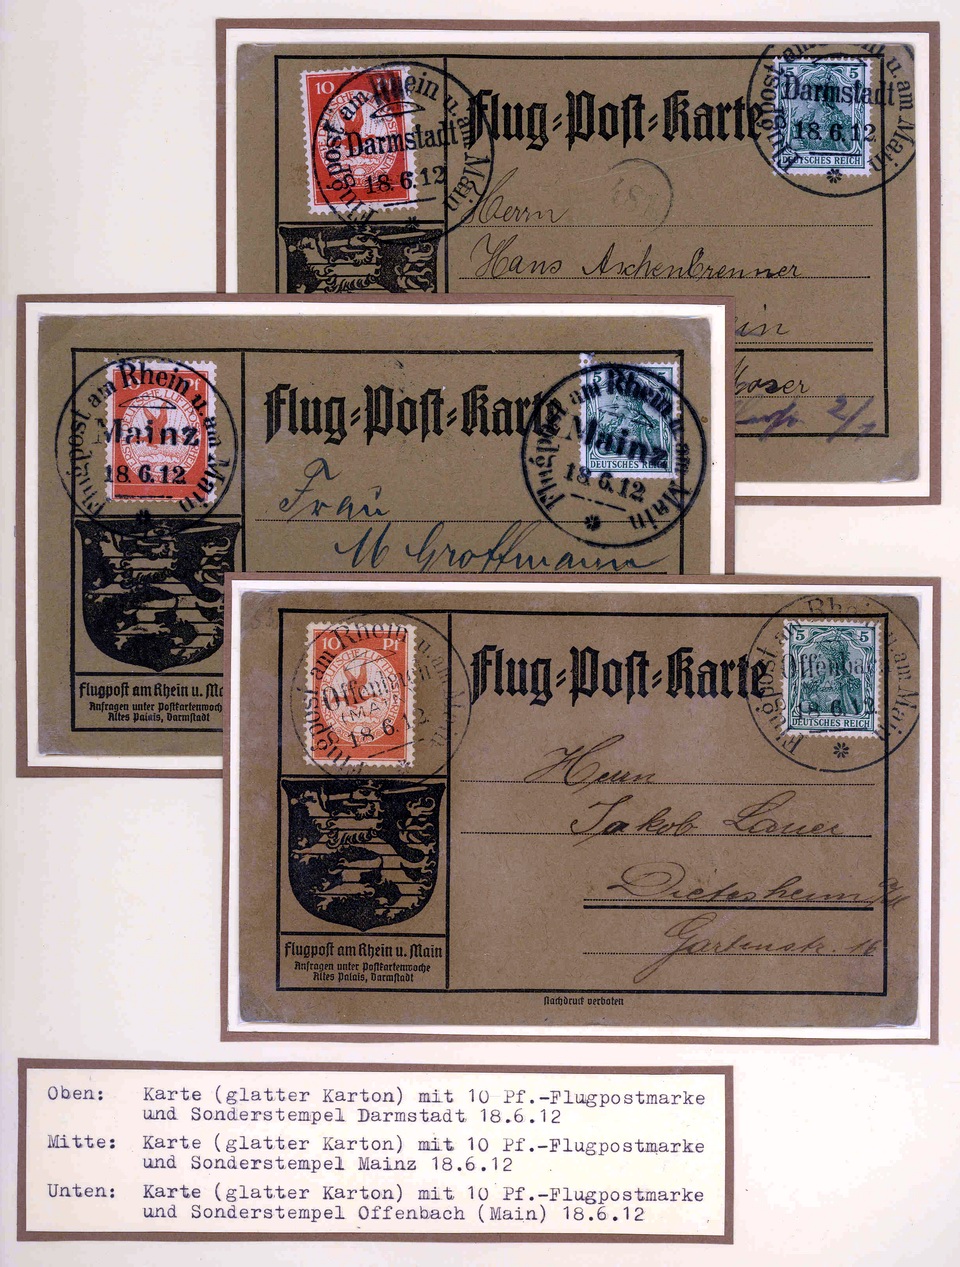 10
5 5
Flugpost am Rhein u. am Main
Darmstadt
18.6.12
Flug=Post=Karte
Flugpost am Rhein u. am Main
Darmstadt
18.6.12
DEUTSCHES REICH
Herrn
Hans Aschenbrenner
Flugpost am Rhein u. am Main
Mainz
18.6.12
Flug=Post=Karte
5
Flugpost am Rhein u. am Main
Mainz
18.6.12
DEUTSCHES REICH
Frau
M Groffmann
Flugpost am Rhein u. Ma
Anfragen unter Postkartenwoch
Altes Palais, Darmstadt
10 Pf
Flugpost am Rhein u. am Main
Offenbach
(MAIN)
18.6.12
Flug=Post=Karte
5 5
Flugpost am Rhein u. am Main
Offenbach
18.6.12
DEUTSCHES REICH
Herrn
Jakob Lauer
Dietesheim a/M
Gartenstr. 16
Flugpost am Rhein u. Main
Anfragen unter Postkartenwoche
Altes Palais, Darmstadt
Nachdruck verboten
Oben: Karte (glatter Karton) mit 10 Pf.-Flugpostmarke
und Sonderstempel Darmstadt 18.6.12
Mitte: Karte (glatter Karton) mit 10 Pf.-Flugpostmarke
und Sonderstempel Mainz 18.6.12
Unten: Karte (glatter Karton) mit 10 Pf.-Flugpostmarke
und Sonderstempel Offenbach (Main) 18.6.12